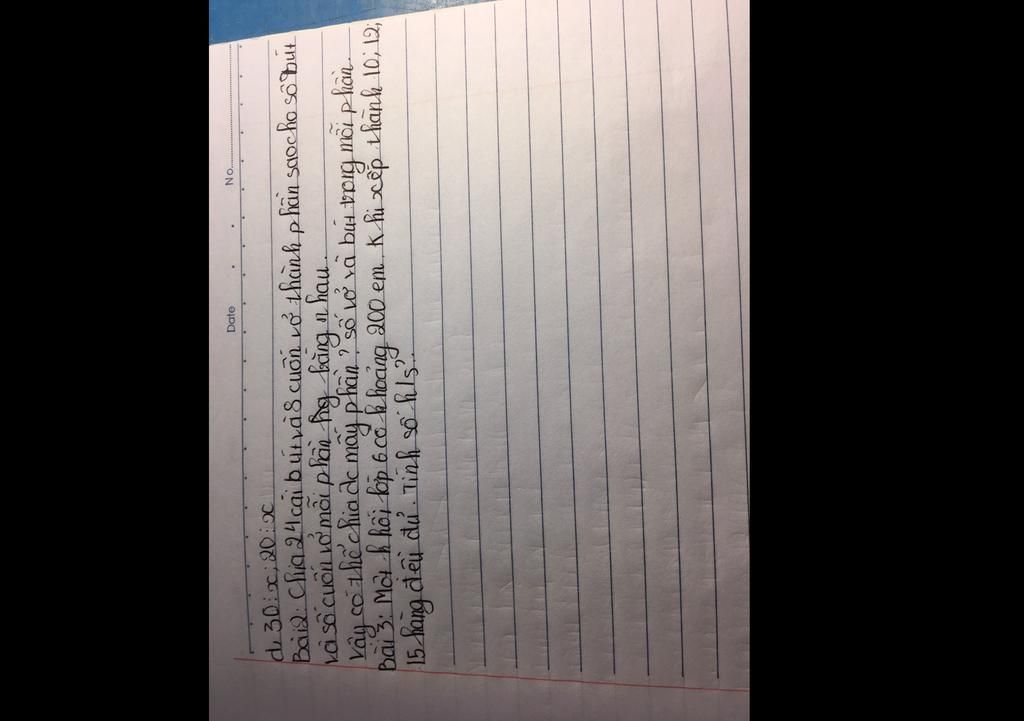 Date . . No.
d, 30 ⋮ x; 20 ⋮ x
Bài 2: Chia 24 cái bút và 8 cuốn vở thành phần sao cho số bút
và số cuốn vở mỗi phần bằng nhau.
Vậy có thể chia đc mấy phần? số vở và bút trong mỗi phần
Bài 3: Một khối lớp 6 có khoảng 200 em. Khi xếp thành 10; 12;
15 hàng đều đủ. Tính số hs?